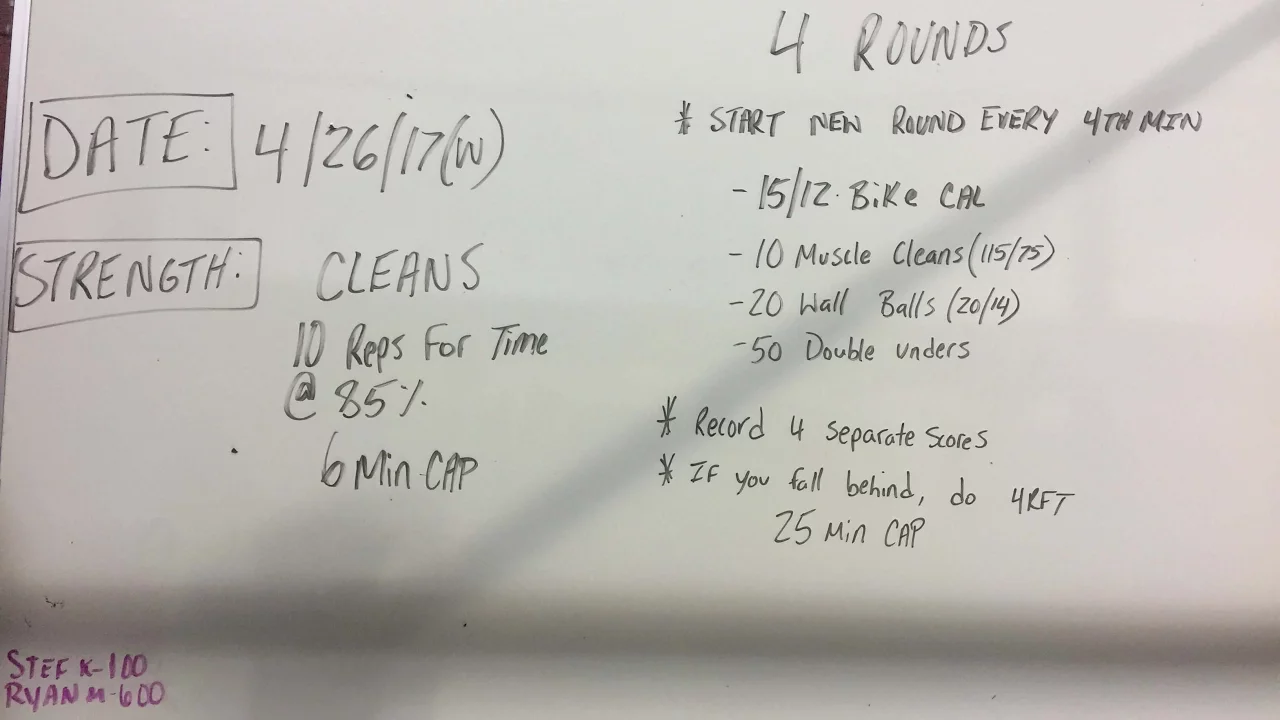 DATE: 4/26/17(W)
STRENGTH: CLEANS
10 Reps For Time
@ 85%
6 Min CAP
4 ROUNDS
* START NEW ROUND EVERY 4TH MIN
- 15/12 Bike CAL
- 10 Muscle Cleans (115/75)
- 20 Wall Balls (20/14)
- 50 Double unders
* Record 4 separate scores
* If you fall behind, do 4RFT
25 Min CAP
STEF K-100
RYAN M-600